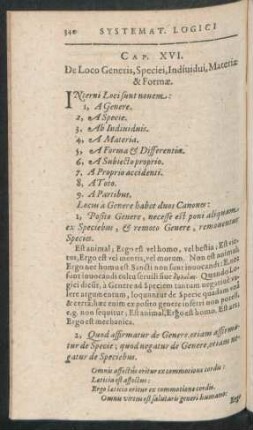 340 SYSTEMAT. LOGICI
CAP. XVI.
De Loco Generis, Speciei, Indiuidui, Materiæ
& Formæ.
INterni Loci sunt nouem:
1, A Genere.
2, A Specie.
3, Ab Indiuiduis.
4, A Materia.
5, A Forma & Differentiæ.
6, A Subiecto proprio.
7, A Proprio accidenti.
8, A Toto.
9, A Partibus.
Locus à Genere habet duos Canones:
1, Posito Genere, necesse est poni aliquam
ex Speciebus, & remoto Genere, remouentur
Species.
Est animal; Ergo est vel homo, vel bestia, Est
Ergo est vel mentis, vel morum. Non est animal,
Ergo nec homo est
sunt inuocandi
gici dicūt, à Genere ad Speciem tantum negatiuè
ler argumentorum, loquuntur de Specie quadam
& certa: hæc enim ex posito genere poni non potest
e.g. non sequitur; Est animal, Ergo est homo. Est
Ergo est mechanica.
2. Quod affirmatur de Genere, etiam affirmatur
de Specie; quod negatur de Genere, etiam negatur
de Speciebus.
Omnis affectus oritur ex commotione cordis.
Laeticia est affectus:
Ergo laeticia oritur ex commotione cordis.
Omnis virtus est salutaris generi humano:
Ergo